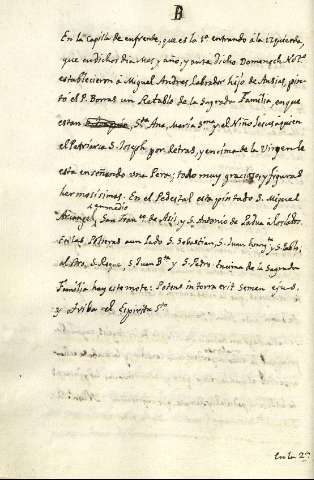 B
En la Capilla de enfrente, que es la 1ª entrando á la izquierda,
que en dichos dia, mes y año, y ante dicho Domenech Notº
establecieron á Miguel Andres, Labrador hijo de Ausias, pin-
tó el P. Borras un Retablo de la Sagrada Familia, en que
estan Sta Ana, María Sma y el Niño Jesus á quien
el Patriarca S. Joseph, por detras, y encima de la Virgen le
esta enseñando una Pera; todo muy gracioso, y figuras
hermosissimas. En el Pedestal esta pintado S. Miguel
Arcangel, San Franco de Asis, y S. Antonio de Padua á los lados.
En las Polseras a un lado S. Sebastian, S. Juan y S. Pablo,
al otro, S. Roque, S. Juan Bta y S. Pedro. Encima de la Sagrada
Familia hay este mote: Potens in terra erit semen ejus.
y arriba el Espiritu Sto
En la 2ª